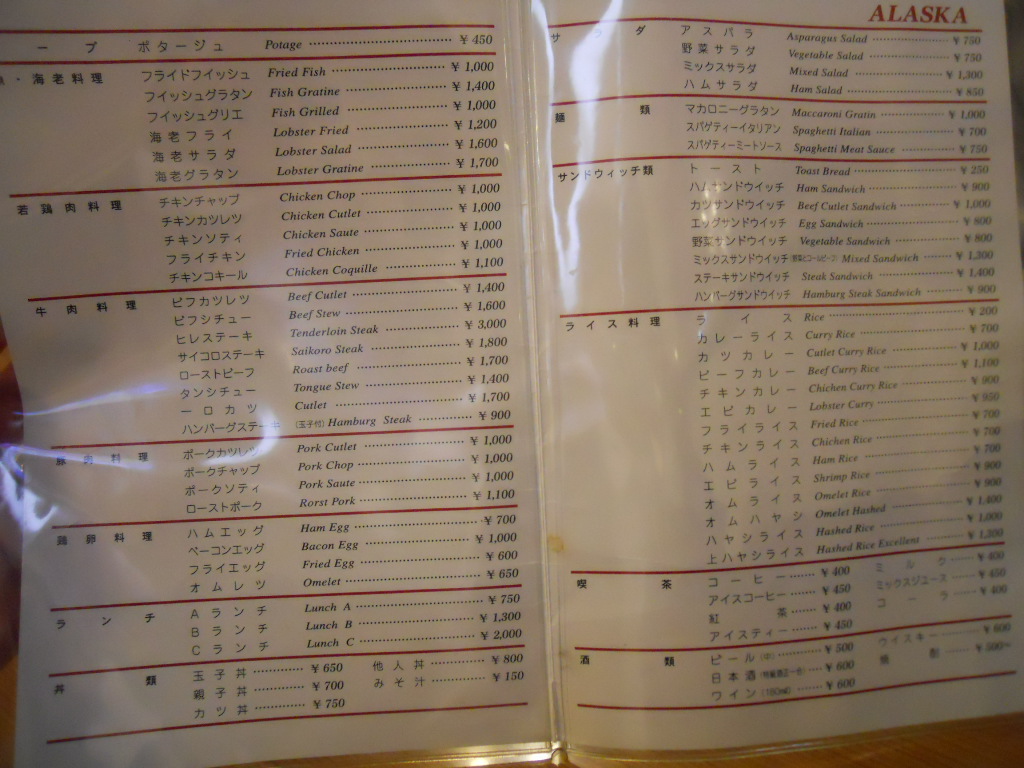 ープ ポタージュ Potage ¥450
・海老料理 フライドフイッシュ Fried Fish ¥1,000
フイッシュグラタン Fish Gratine ¥1,400
フイッシュグリエ Fish Grilled ¥1,000
海老フライ Lobster Fried ¥1,200
海老サラダ Lobster Salad ¥1,600
海老グラタン Lobster Gratine ¥1,700
若鶏肉料理 チキンチャップ Chicken Chop ¥1,000
チキンカツレツ Chicken Cutlet ¥1,000
チキンソティ Chicken Saute ¥1,000
フライチキン Fried Chicken ¥1,000
チキンコキール Chicken Coquille ¥1,100
牛肉料理 ビフカツレツ Beef Cutlet ¥1,400
ビフシチュー Beef Stew ¥1,600
ヒレステーキ Tenderloin Steak ¥3,000
サイコロステーキ Saikoro Steak ¥1,800
ローストビーフ Roast beef ¥1,700
タンシチュー Tongue Stew ¥1,400
一口カツ Cutlet ¥1,700
ハンバーグステーキ (玉子付) Hamburg Steak ¥900
豚肉料理 ポークカツレツ Pork Cutlet ¥1,000
ポークチャップ Pork Chop ¥1,000
ポークソティ Pork Saute ¥1,000
ローストポーク Rorst Pork ¥1,100
鶏卵料理 ハムエッグ Ham Egg ¥700
ベーコンエッグ Bacon Egg ¥1,000
フライエッグ Fried Egg ¥600
オムレツ Omelet ¥650
ランチ Aランチ Lunch A ¥750
Bランチ Lunch B ¥1,300
Cランチ Lunch C ¥2,000
丼類 玉子丼 ¥650 他人丼 ¥800
親子丼 ¥700 みそ汁 ¥150
カツ丼 ¥750
ALASKA
サラダ アスパラ Asparagus Salad ¥750
野菜サラダ Vegetable Salad ¥750
ミックスサラダ Mixed Salad ¥1,300
ハムサラダ Ham Salad ¥850
麺類 マカロニーグラタン Maccaroni Gratin ¥1,000
スパゲティーイタリアン Spaghetti Italian ¥700
スパゲティーミートソース Spaghetti Meat Sauce ¥750
サンドウィッチ類 トースト Toast Bread ¥250
ハムサンドウイッチ Ham Sandwich ¥900
カツサンドウイッチ Beef Cutlet Sandwich ¥1,000
エッグサンドウイッチ Egg Sandwich ¥800
野菜サンドウイッチ Vegetable Sandwich ¥800
ミックスサンドウイッチ Mixed Sandwich ¥1,300
ステーキサンドウイッチ Steak Sandwich ¥1,400
ハンバーグサンドウイッチ Hamburg Steak Sandwich ¥900
ライス料理 ライス Rice ¥200
カレーライス Curry Rice ¥700
カツカレー Cutlet Curry Rice ¥1,000
ビーフカレー Beef Curry Rice ¥1,100
チキンカレー Chichen Curry Rice ¥900
エビカレー Lobster Curry ¥950
フライライス Fried Rice ¥700
チキンライス Chichen Rice ¥700
ハムライス Ham Rice ¥700
エビライス Shrimp Rice ¥900
オムライス Omelet Rice ¥900
オムハヤシ Omelet Hashed ¥1,400
ハヤシライス Hashed Rice ¥1,000
上ハヤシライス Hashed Rice Excellent ¥1,300
喫茶 コーヒー ¥400 ミルク ¥400
アイスコーヒー ¥450 ミックスジュース ¥450
紅茶 ¥400 コーラ ¥400
アイスティー ¥450
酒類 ビール(中) ¥500 ウイスキー ¥600
日本酒 ¥600 焼酎 ¥500~
ワイン(180ml) ¥600